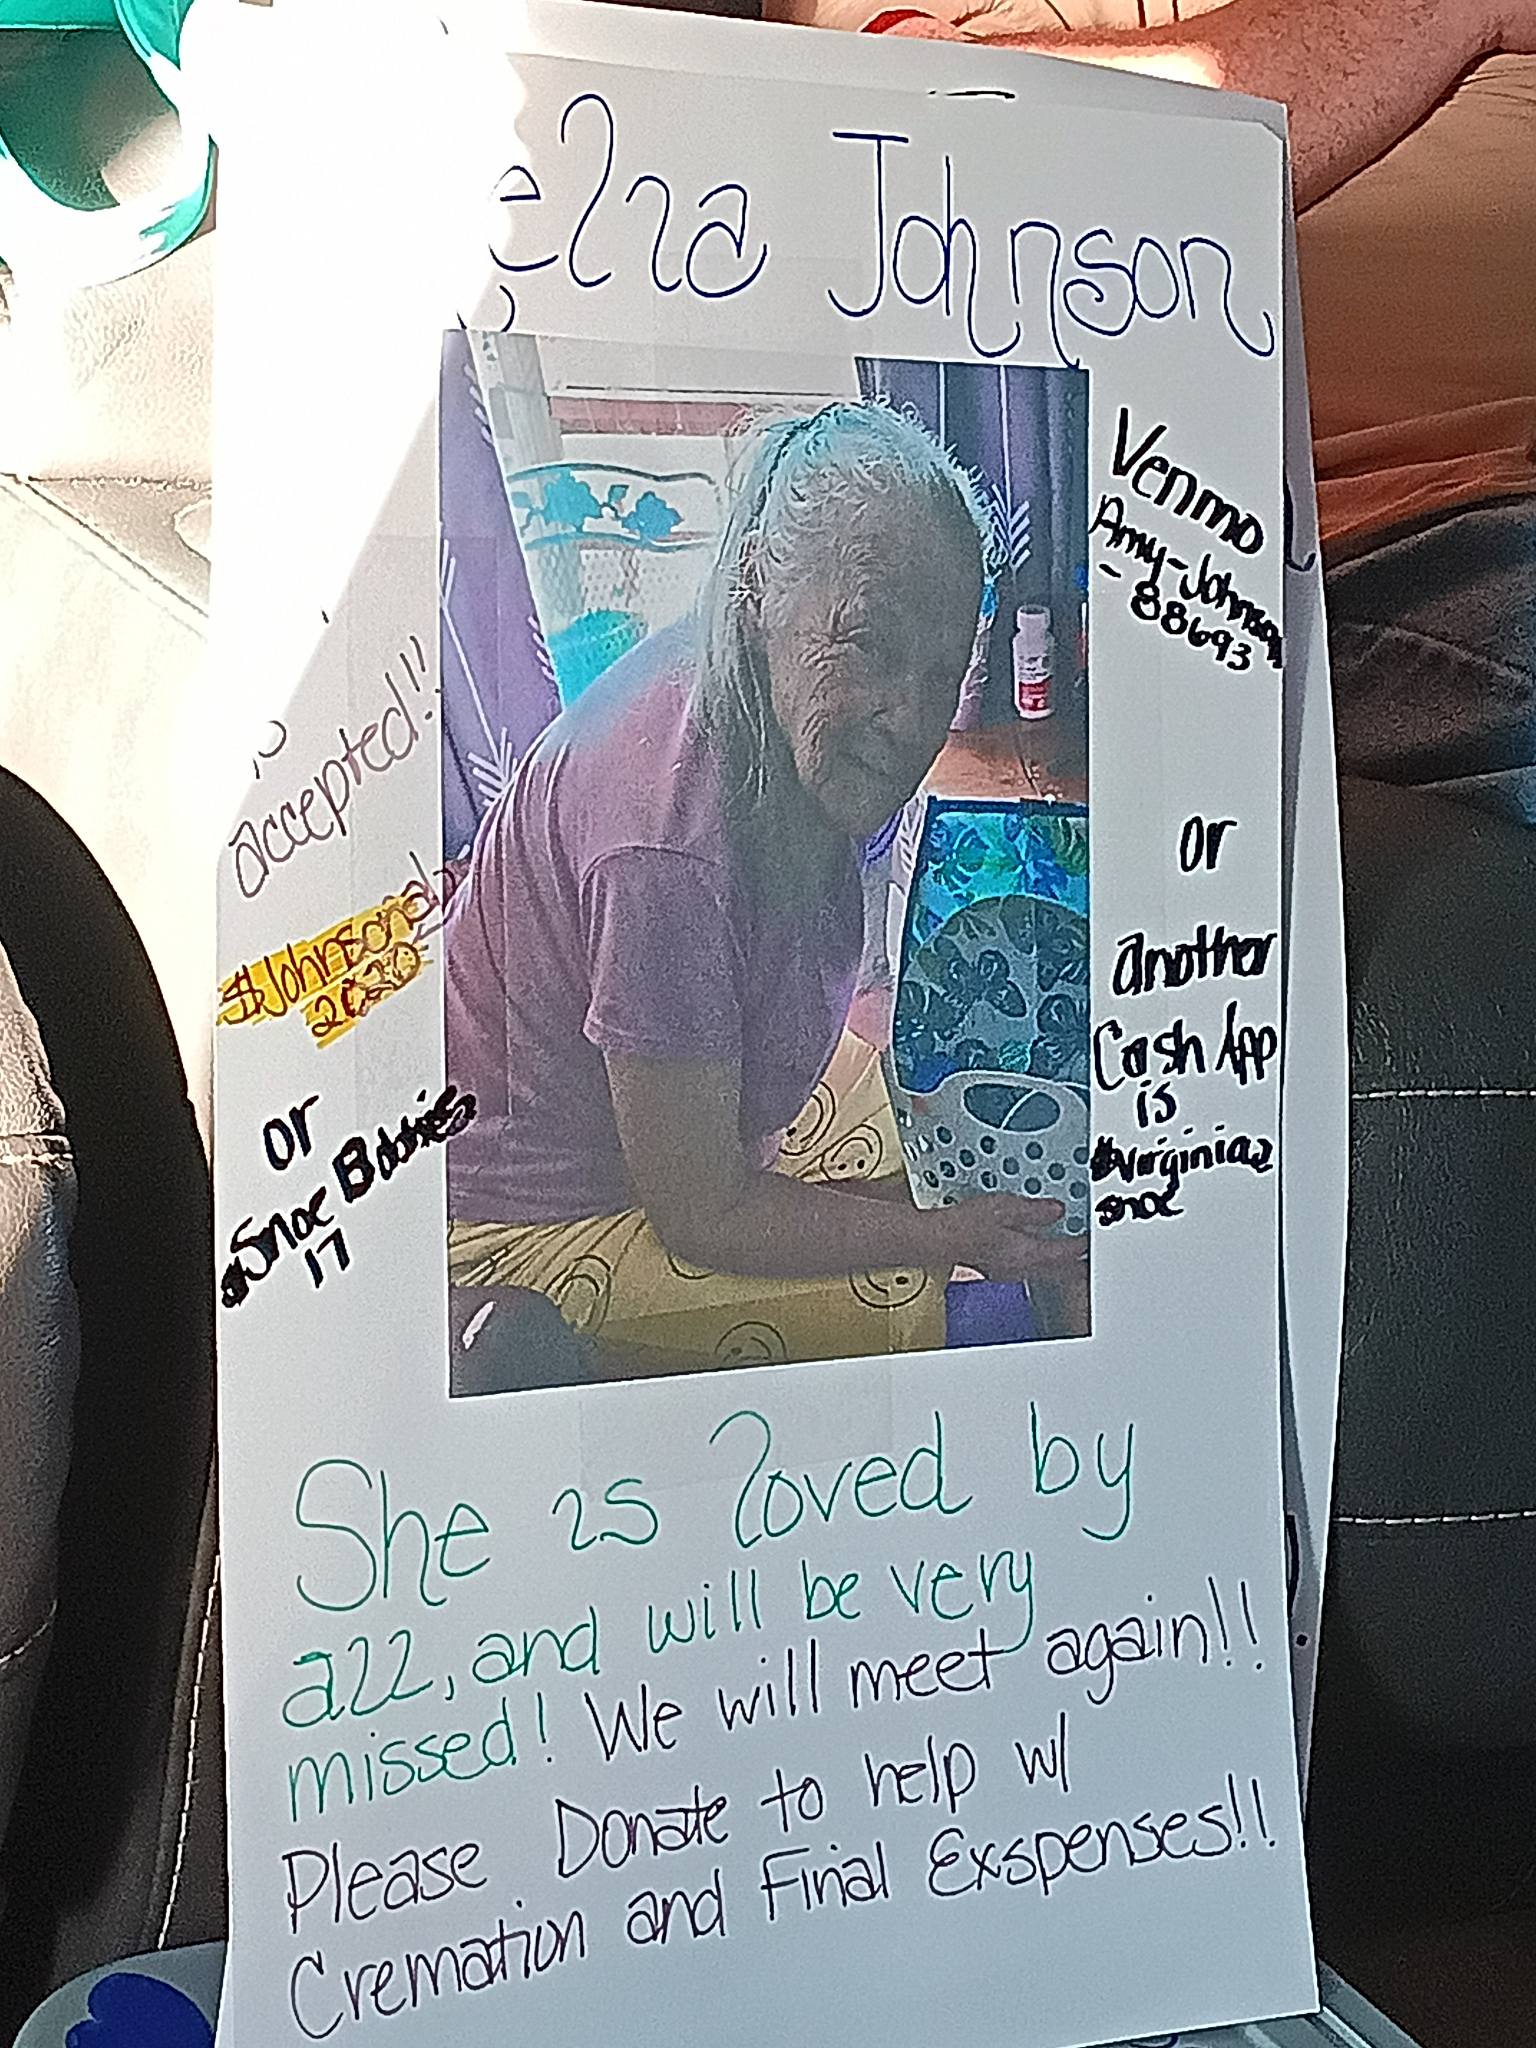 Johnson
Venmo
Amy-Johnson
-88693
accepted!!
or
another
Cash App
is
$virginia2
snoe
or
17
She is loved by
all, and will be very
missed! We will meet again!!
Please Donate to help w/
Cremation and Final Exspenses!!